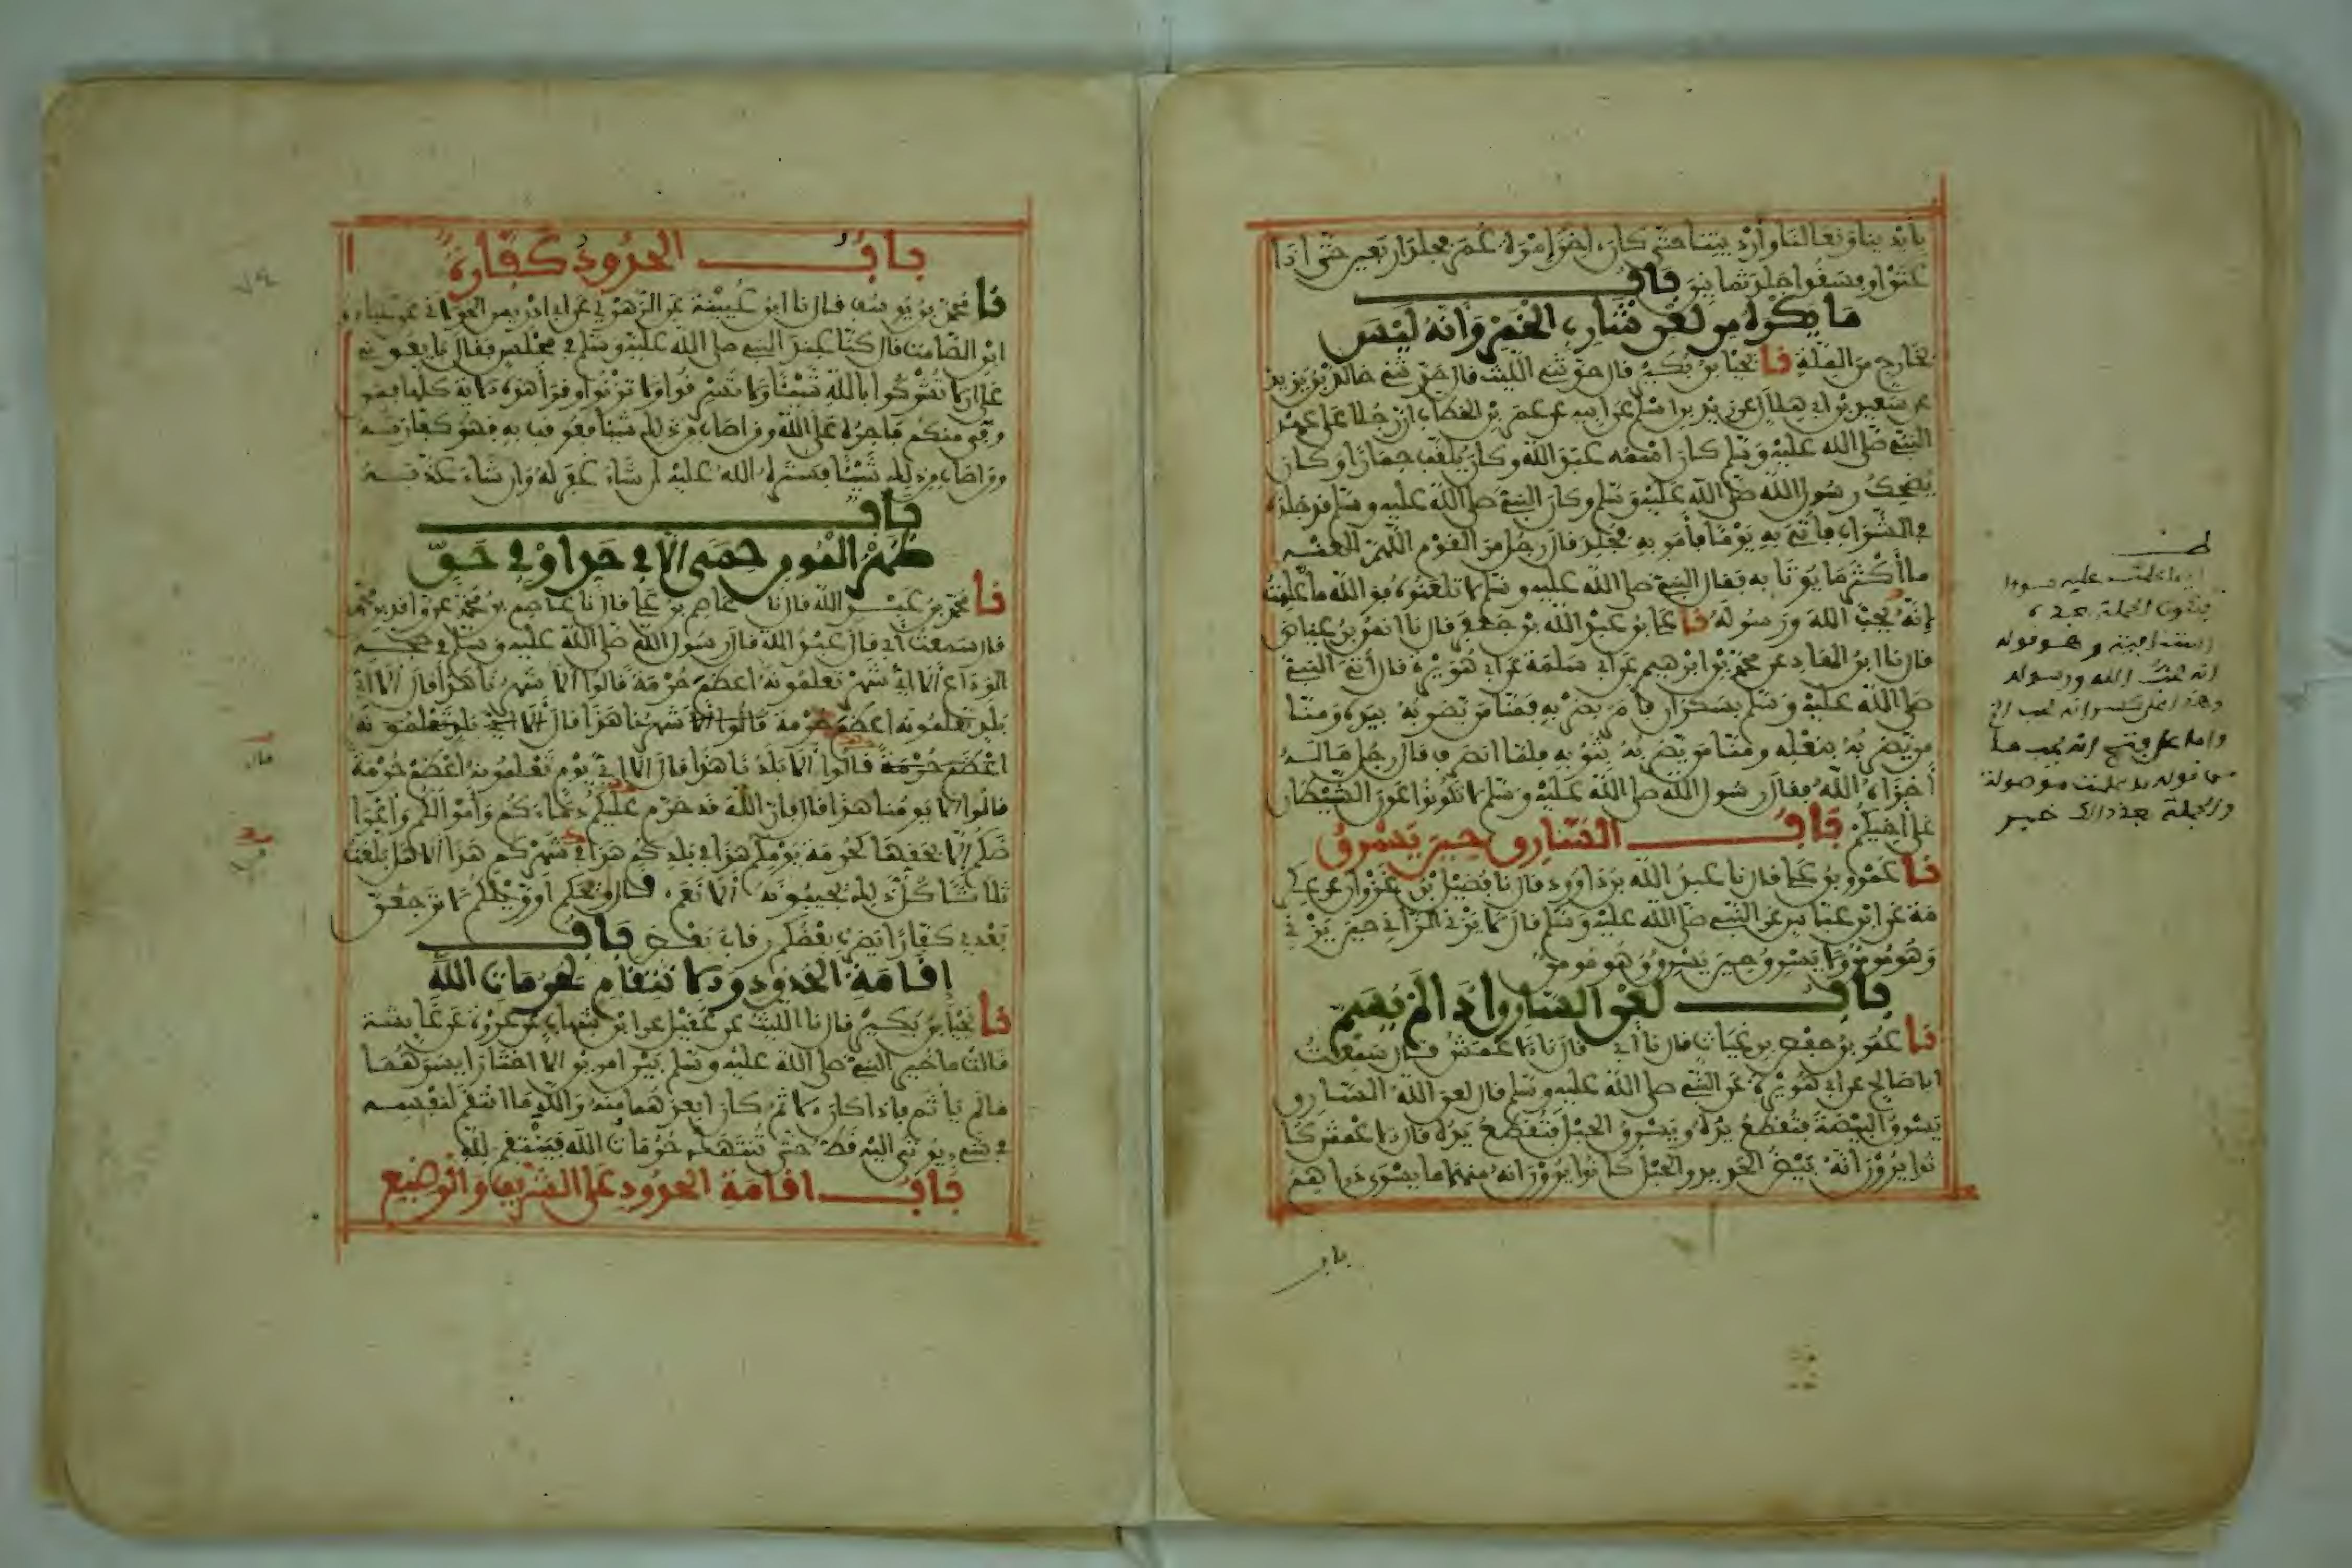 بأيدينا ونعالنا وأرديتنا حتى كان اخر امرة عمر فجلد اربعين حتى اذا
عتوا وفسقوا جلد ثمانين باب
ما يكره من لعن شارب الخمر وأنه ليس
بخارج من الملة نا يحيا بن بكير قال حدثني الليث قال حدثني خالد بن يزيد
عن سعيد بن ابي هلال عن زيد بن اسلم عن ابيه عن عمر بن الخطاب ان رجلا على عهد
النبي صلى الله عليه وسلم كان اسمه عبد الله وكان يلقب حمارا وكان
يضحك رسول الله صلى الله عليه وسلم وكان النبي صلى الله عليه وسلم قد جلده
في الشراب فأتي به يوما فأمر به فجلد فقال رجل من القوم اللهم العنه
ما أكثر ما يوتا به فقال النبي صلى الله عليه وسلم لا تلعنوه فو الله ما علمت
إنه يحب الله ورسوله نا علي بن عبد الله بن جعفر قال نا انس بن عياض
قال نا ابن الهاد عن محمد بن ابرهيم عن ابي سلمة عن ابي هريرة قال أتي النبي
صلى الله عليه وسلم بسكران فأمر بضربه فمنا من يضربه بيده ومنا
من يضربه بنعله ومنا من يضربه بثوبه فلما انصرف قال رجل ما له
أخزاه الله فقال رسول الله صلى الله عليه وسلم لا تكونوا عون الشيطان
على أخيكم باب السارق حين يسرق
نا عمرو بن علي قال نا عبد الله بن داوود قال نا فضيل بن غزوان عن عكر
مة عن ابن عباس عن النبي صلى الله عليه وسلم قال لا يزني الزاني حين يزني
وهو مومن ولا يسرق حين يسرق وهو مومن
باب لعن السارق اذا لم يسم
نا عمر بن حفص بن غياث قال نا أبي قال نا الاعمش قال سمعت
ابا صالح عن ابي هريرة عن النبي صلى الله عليه وسلم قال لعن الله السارق
يسرق البيضة فتقطع يده ويسرق الحبل فتقطع يده قال الاعمش كا
نوا يرون انه بيض الحديد والحبل كانوا يرون انه منها ما يسوى دراهم
باب
وهو قوله
انه يحب الله ورسوله
باب الحدود كفارة
نا محمد بن يوسف قال نا ابن عيينة عن الزهري عن ابي ادريس الخولاني عن عبادة
ابن الصامت قال كنا عند النبي صلى الله عليه وسلم في مجلس فقال بايعوني
على ان لا تشركوا بالله شيئا ولا تسرقوا ولا تزنوا وقرأ هذه الاية كلها فمن
وفى منكم فاجره على الله ومن اصاب من ذلك شيئا فعوقب به فهو كفارته
ومن اصاب من ذلك شيئا فستره الله عليه ان شاء غفر له وان شاء عذبه
باب
ظهر المومن حمى الا في حد او في حق
نا محمد بن عبد الله قال نا عاصم بن علي قال نا عاصم بن محمد عن واقد بن محمد
قال سمعت أبي قال عبد الله قال رسول الله صلى الله عليه وسلم في حجة
الوداع ألا اي شهر تعلمونه اعظم حرمة قالوا ألا شهرنا هذا قال ألا اي
بلد تعلمونه اعظم حرمة قالوا ألا شهرنا هذا قال ألا اي بلد تعلمونه
اعظم حرمة قالوا ألا بلدنا هذا قال ألا اي يوم تعلمونه اعظم حرمة
قالوا ألا يومنا هذا قال فإن الله قد حرم عليكم دماءكم وأموالكم وأعرا
ضكم إلا بحقها كحرمة يومكم هذا في بلدكم هذا في شهركم هذا ألا هل بلغت
ثلاثا كل ذلك يجيبونه ألا نعم قال ويحكم او ويلكم لا ترجعن
بعدي كفارا يضرب بعضكم رقاب بعض باب
إقامة الحدود والانتقام لحرمات الله
نا يحيا بن بكير قال نا الليث عن عقيل عن ابن شهاب عن عروة عن عايشة
قالت ما خير النبي صلى الله عليه وسلم بين امرين الا اختار ايسرهما
ما لم ياثم فاذا كان الاثم كان ابعدهما منه والله ما انتقم لنفسه
في شيء يوتى اليه قط حتى تنتهك حرمات الله فينتقم لله
باب اقامة الحدود على الشريف والوضيع